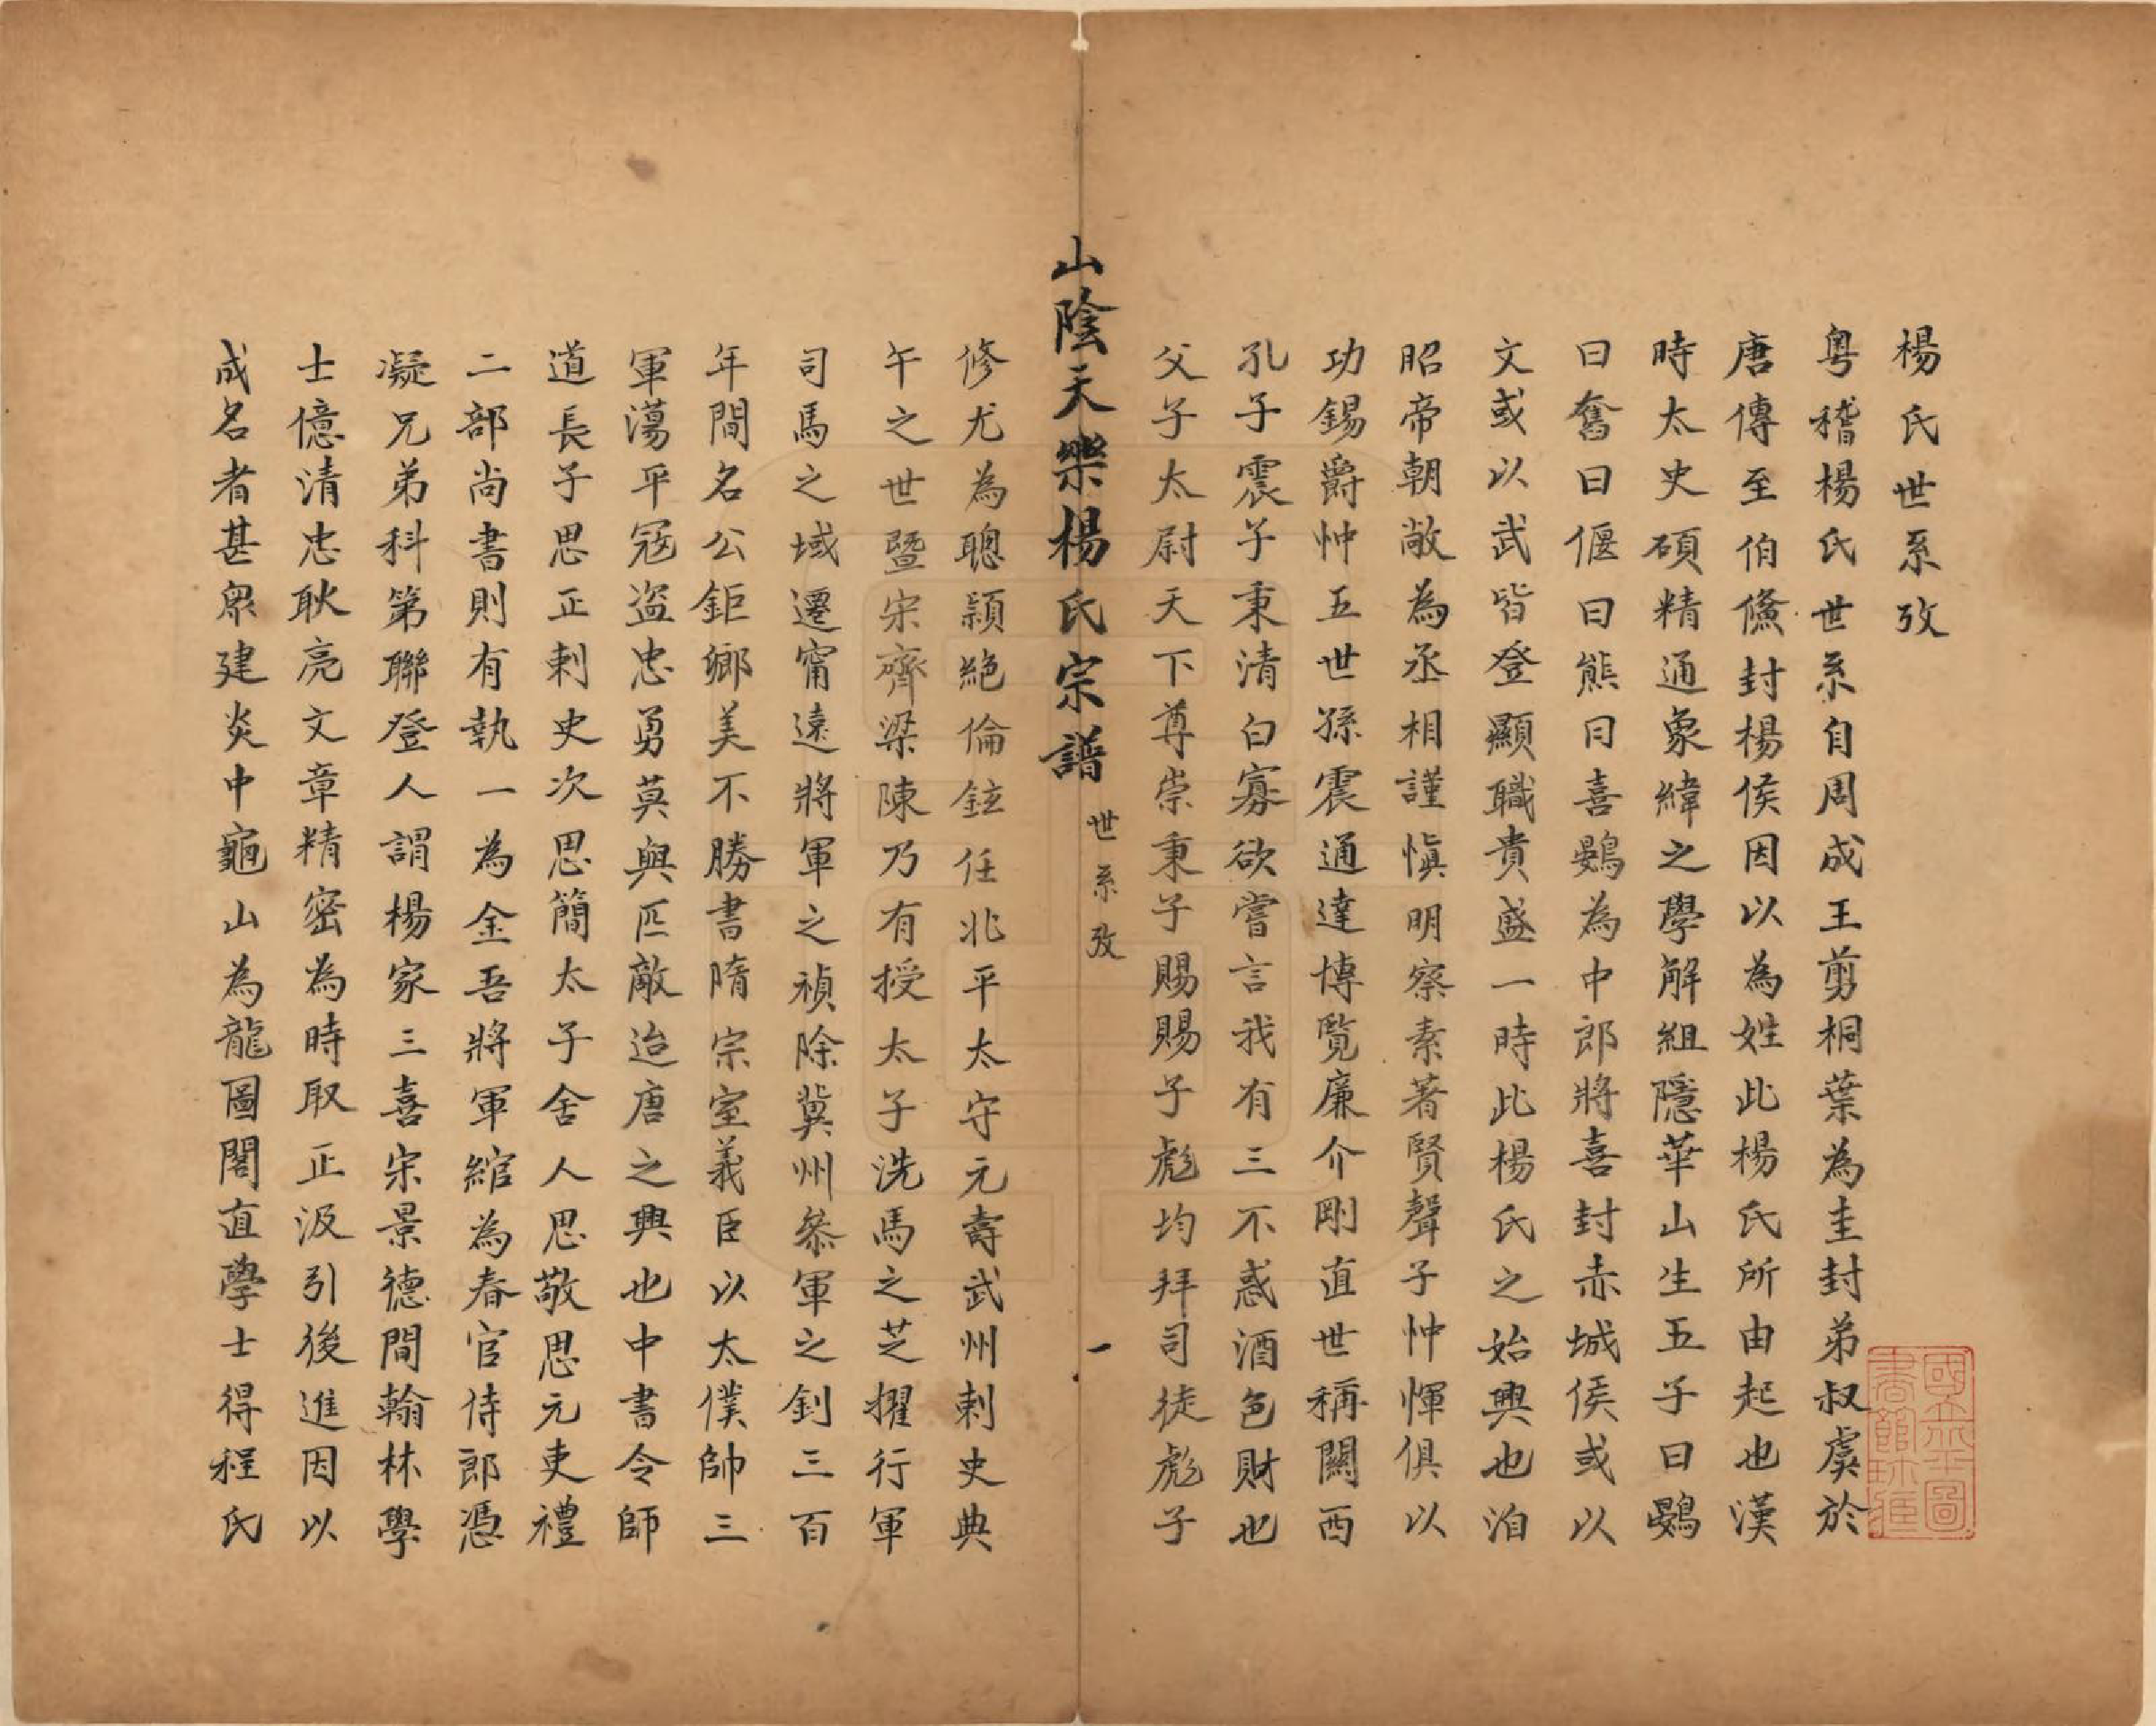 楊氏世系攷
粤稽楊氏世系自周成王剪桐葉為圭封弟叔虞於
唐傳至伯儵封楊侯因以為姓此楊氏所由起也漢
時太史碩精通象緯之學解組隱華山生五子曰鷃
曰奮曰偃曰熊曰喜鷃為中郎將喜封赤城侯或以
文或以武皆登顯職貴盛一時此楊氏之始興也洎
昭帝朝敞為丞相謹慎明察素著賢聲子忡惲俱以
功錫爵忡五世孫震通達博覧廉介剛直世稱關西
孔子震子秉清白寡欲嘗言我有三不惑酒色財也
父子太尉天下尊崇秉子賜賜子彪均拜司徒彪子
山陰天樂楊氏宗譜 世系攷 一
修尤為聰穎絕倫鉉任北平太守元壽武州刺史典
午之世暨宋齊梁陳乃有授太子洗馬之芝擢行軍
司馬之域遷甯遠將軍之禎除冀州叅軍之釗三百
年間名公鉅鄉美不勝書隋宗室義臣以太僕帥三
軍蕩平寇盗忠勇莫與匹敵迨唐之興也中書令師
道長子思正刺史次思簡太子舍人思敬思元吏禮
二部尚書則有執一為金吾將軍綰為春官侍郎憑
凝兄弟科第聯登人謂楊家三喜宋景德間翰林學
士億清忠耿亮文章精密為時取正汲引後進因以
成名者甚眾建炎中龜山為龍圖閣直學士得程氏
國立北平圖
書館珍藏